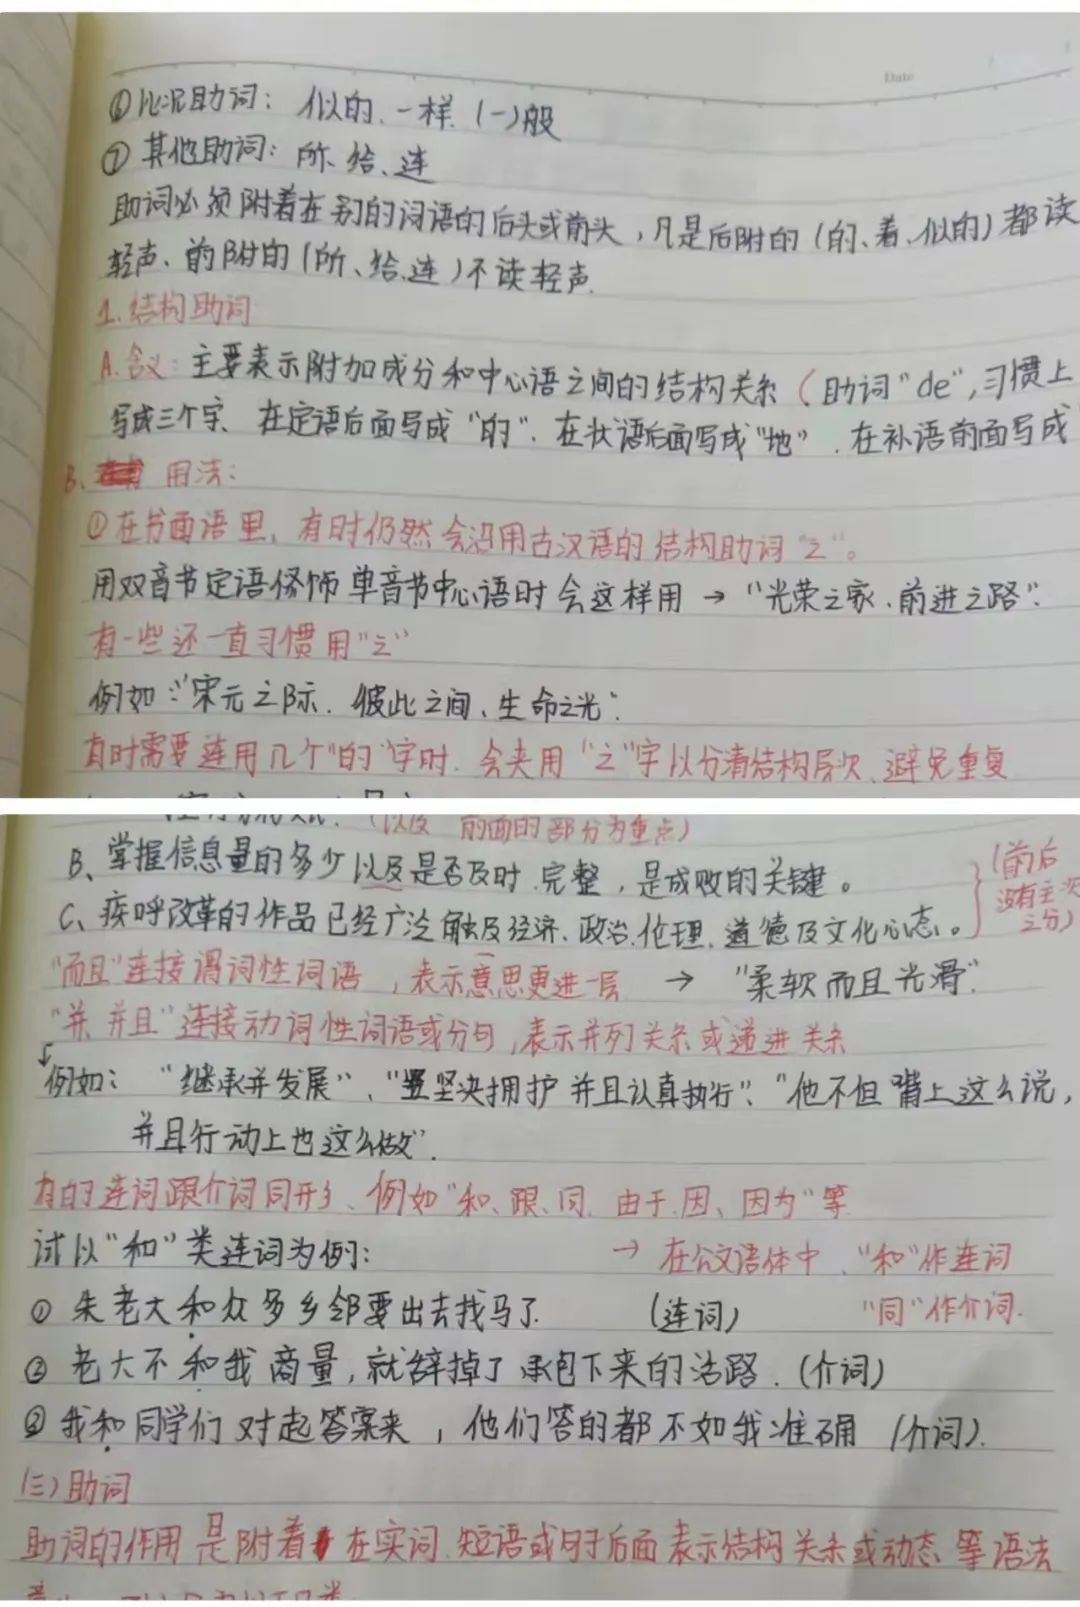 Date
⑥比况助词：似的、一样、(一)般
⑦其他助词：所、给、连
助词必须附着在别的词语的后头或前头，凡是后附的(的、着、似的)都读
轻声、前附的(所、给、连)不读轻声.
1.结构助词
A.含义：主要表示附加成分和中心语之间的结构关系(助词"de",习惯上
写成三个字、在定语后面写成"的"、在状语后面写成"地"、在补语前面写成
B、用法：
①在书面语里，有时仍然会沿用古汉语的结构助词"之"。
用双音节定语修饰单音节中心语时会这样用→"光荣之家、前进之路".
有一些还一直习惯用"之"
例如："宋元之际、彼此之间、生命之光".
有时需要连用几个"的"字时、会夹用"之"字以分清结构层次、避免重复
(以及 前面的部分为重点)
B、掌握信息量的多少以及是否及时、完整，是成败的关键。
(前后没有主次之分)
C、疾呼改革的作品已经广泛触及经济、政治、伦理、道德及文化心态。
"而且"连接谓词性词语，表示意思更进一层 → "柔软而且光滑".
"并、并且"连接动词性词语或分句，表示并列关系或递进关系
例如："继承并发展"、"坚决拥护并且认真执行"、"他不但嘴上这么说，
并且行动上也这么做".
有的连词跟介词同形、例如"和、跟、同、由于、因、因为"等
试以"和"类连词为例： → 在公文语体中、"和"作连词
①朱老大和众多乡邻要出去找马了. (连词) "同"作介词.
②老大不和我商量，就辞掉了承包下来的活路. (介词)
③我和同学们对起答案来，他们答的都不如我准确 (介词).
(三)助词
助词的作用是附着在实词、短语或句子后面表示结构关系或动态等语法